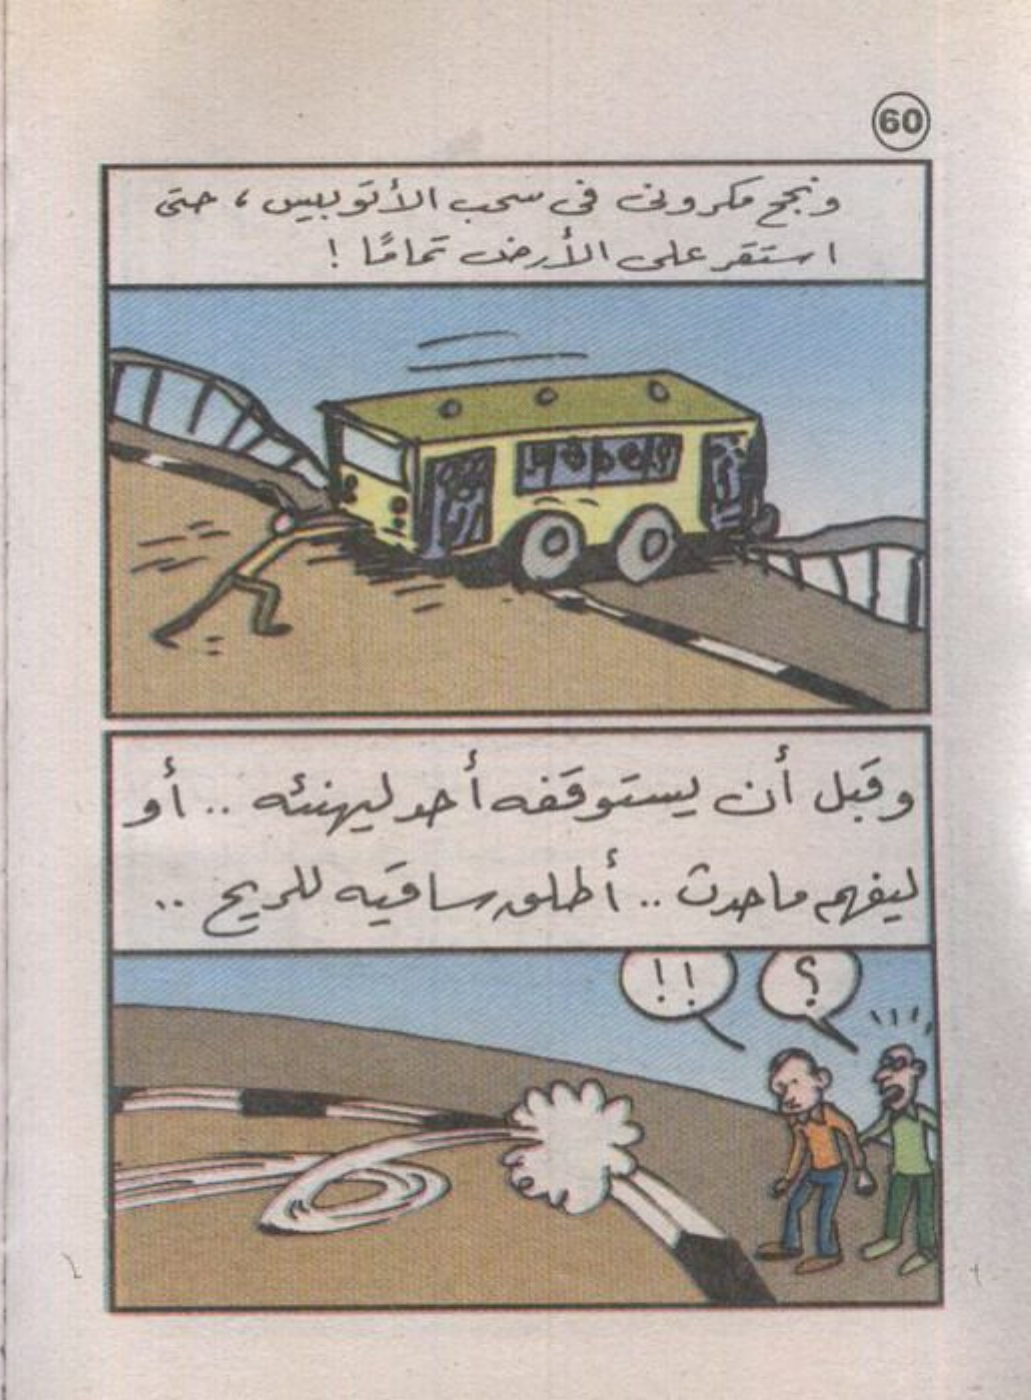 60
ونجح مكرونى فى سحب الأتوبيس ، حتى
استقر على الأرض تمامًا !
وقبل أن يستوقفه أحد ليهنئه .. أو
ليفهم ما حدث .. أطلق ساقيه للريح ..
؟
!!